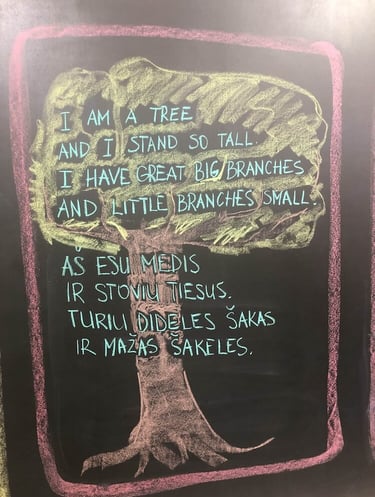 I AM A TREE
AND I STAND SO TALL
I HAVE GREAT BIG BRANCHES
AND LITTLE BRANCHES SMALL.
AŠ ESU MEDIS
IR STOVIU TIESUS.
TURIU DIDELES ŠAKAS
IR MAŽAS ŠAKELES.